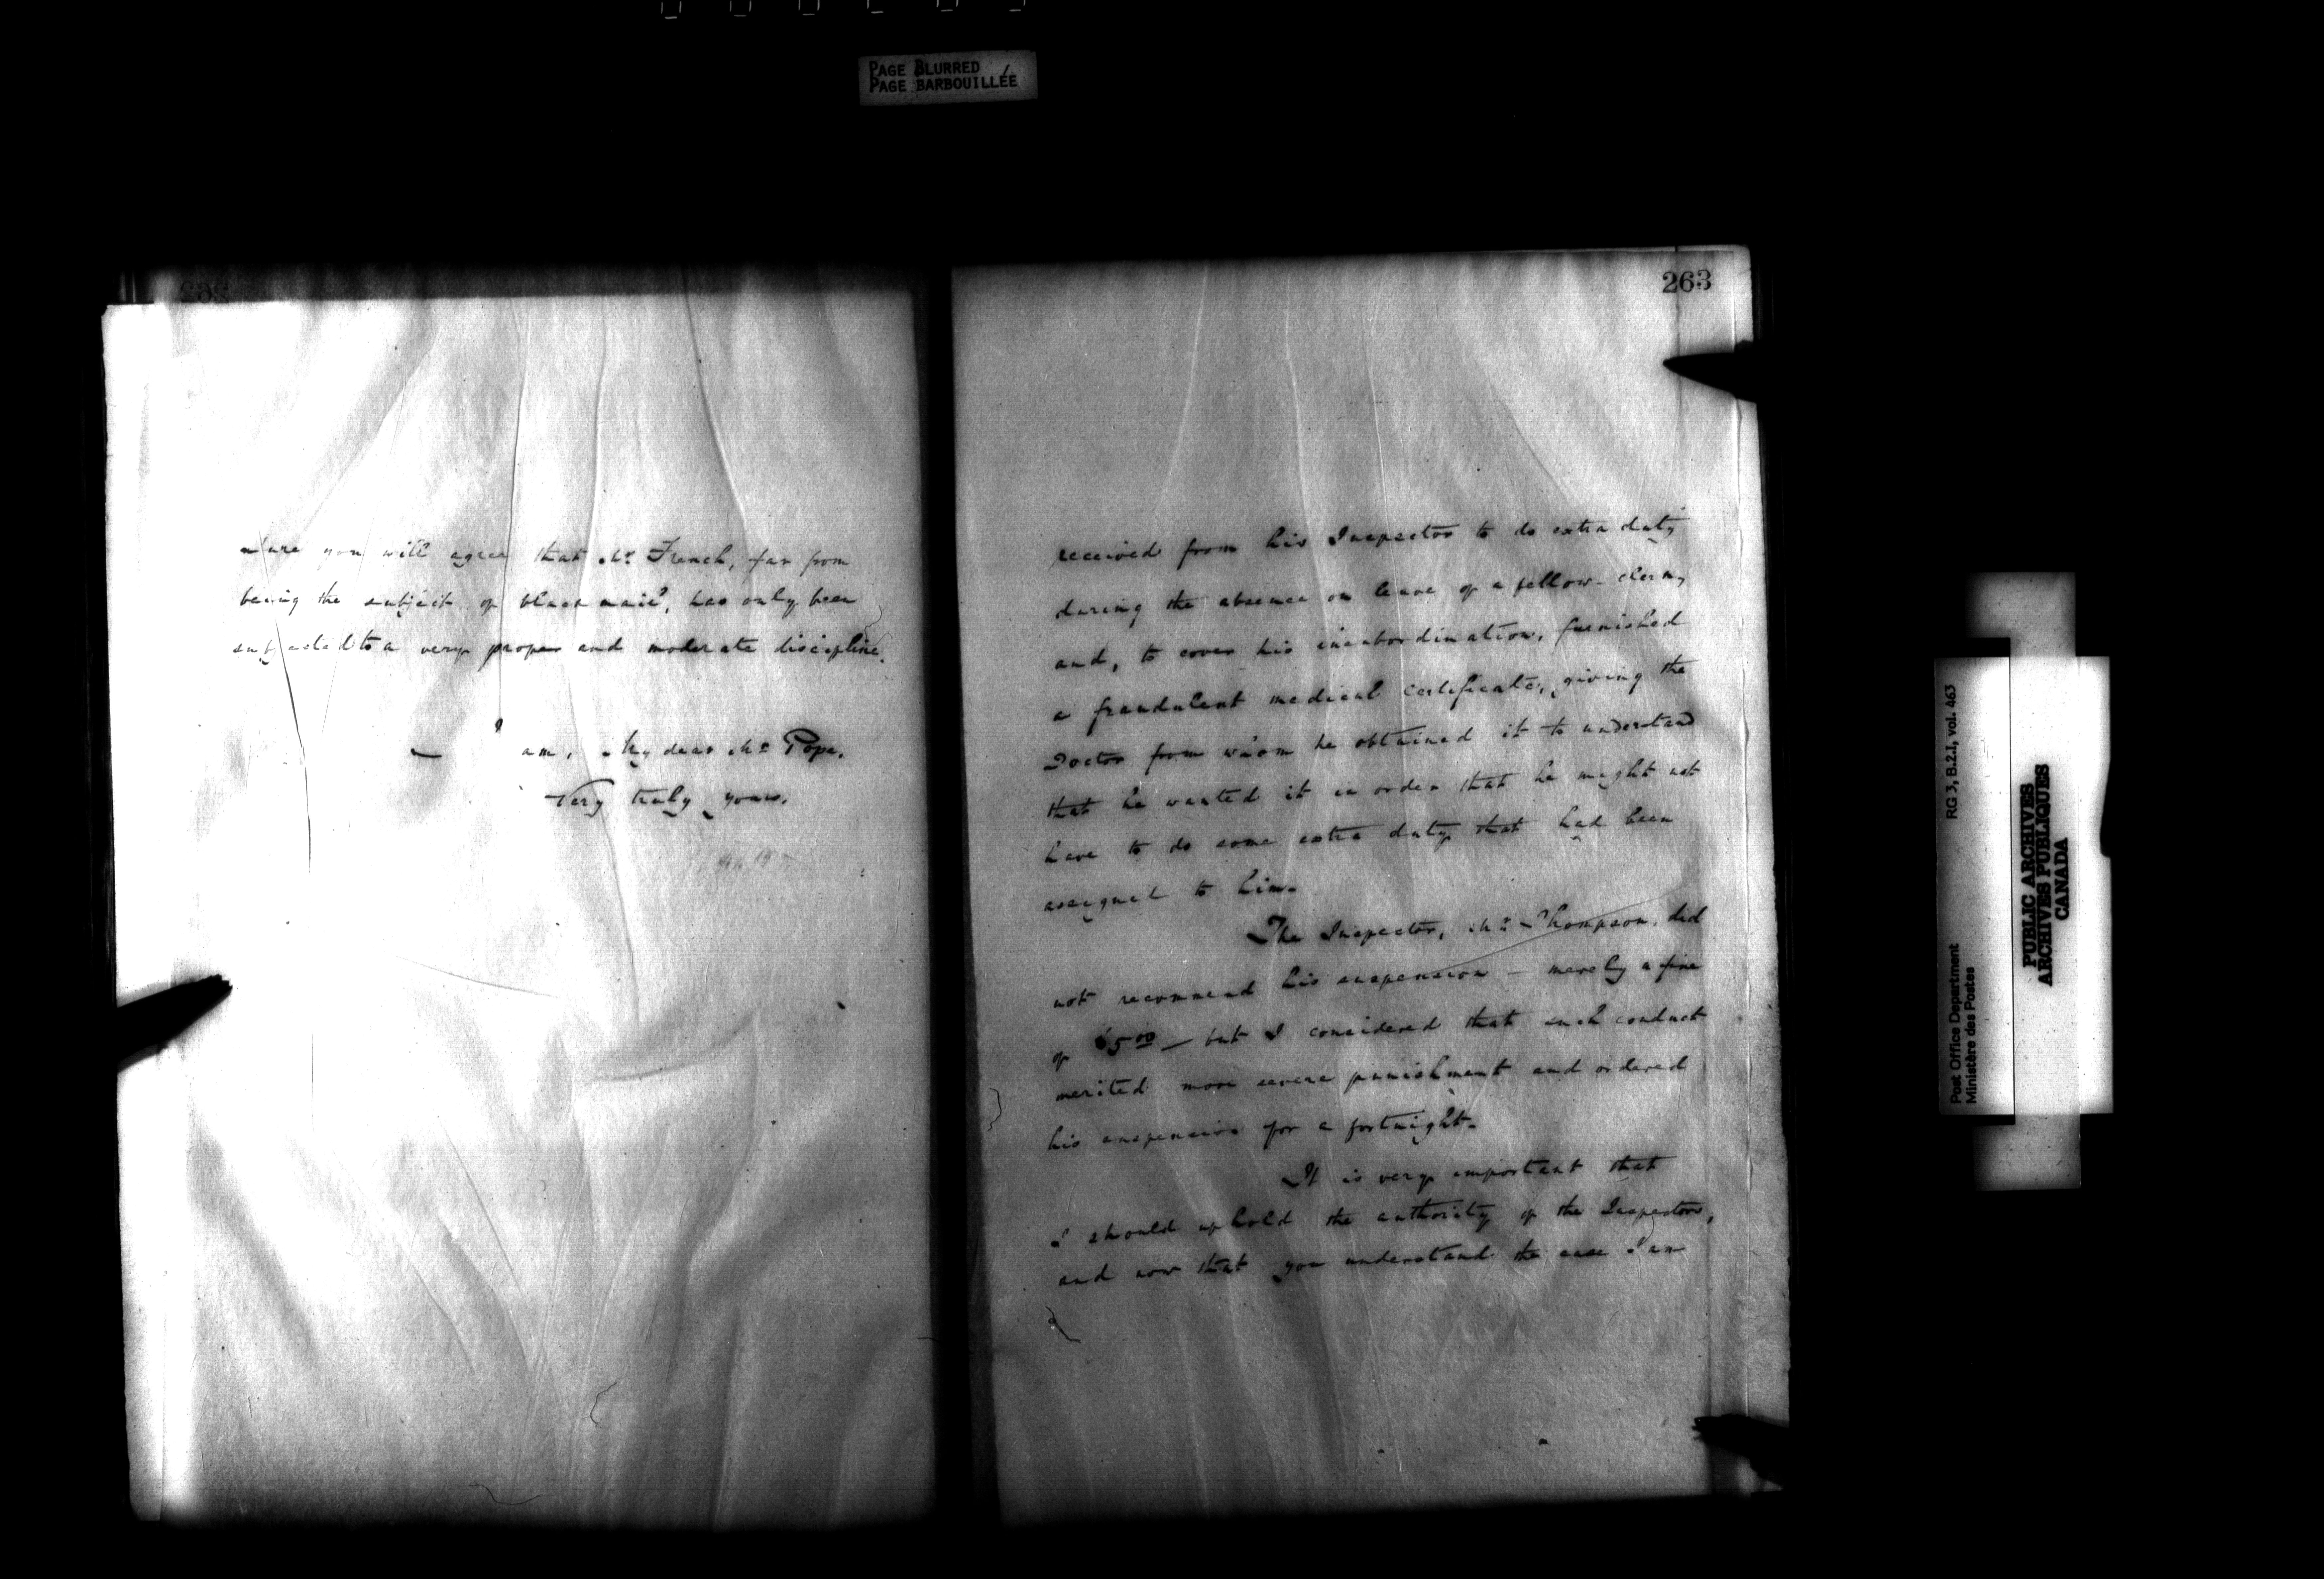 PAGE BLURRED
PAGE BARBOUILLÉE
sure you will agree that Mr French, far from
being the subject of black mail, has only been
subjected to a very proper and moderate discipline.
I am, My dear Mr Pope,
Very truly yours,
263
received from his Inspector to do extra duty
during the absence on leave of a fellow-clerk,
and, to cover his insubordination, furnished
a fraudulent medical certificate, giving the
Doctor from whom he obtained it to understand
that he wanted it in order that he might not
have to do some extra duty that had been
assigned to him.
The Inspector, Mr Thompson, did
not recommend his suspension – merely a fine
of $5.00 – but I considered that such conduct
merited more severe punishment and ordered
his suspension for a fortnight.
It is very important that
I should uphold the authority of the Inspectors,
and now that you understand the case I am
Post Office Department
Ministère des Postes
RG 3, B.2.1, vol. 463
PUBLIC ARCHIVES
ARCHIVES PUBLIQUES
CANADA